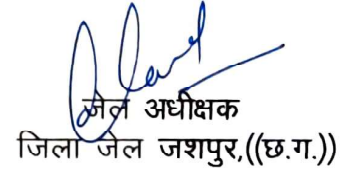 जेल अधीक्षक
जिला जेल जशपुर,((छ.ग.))